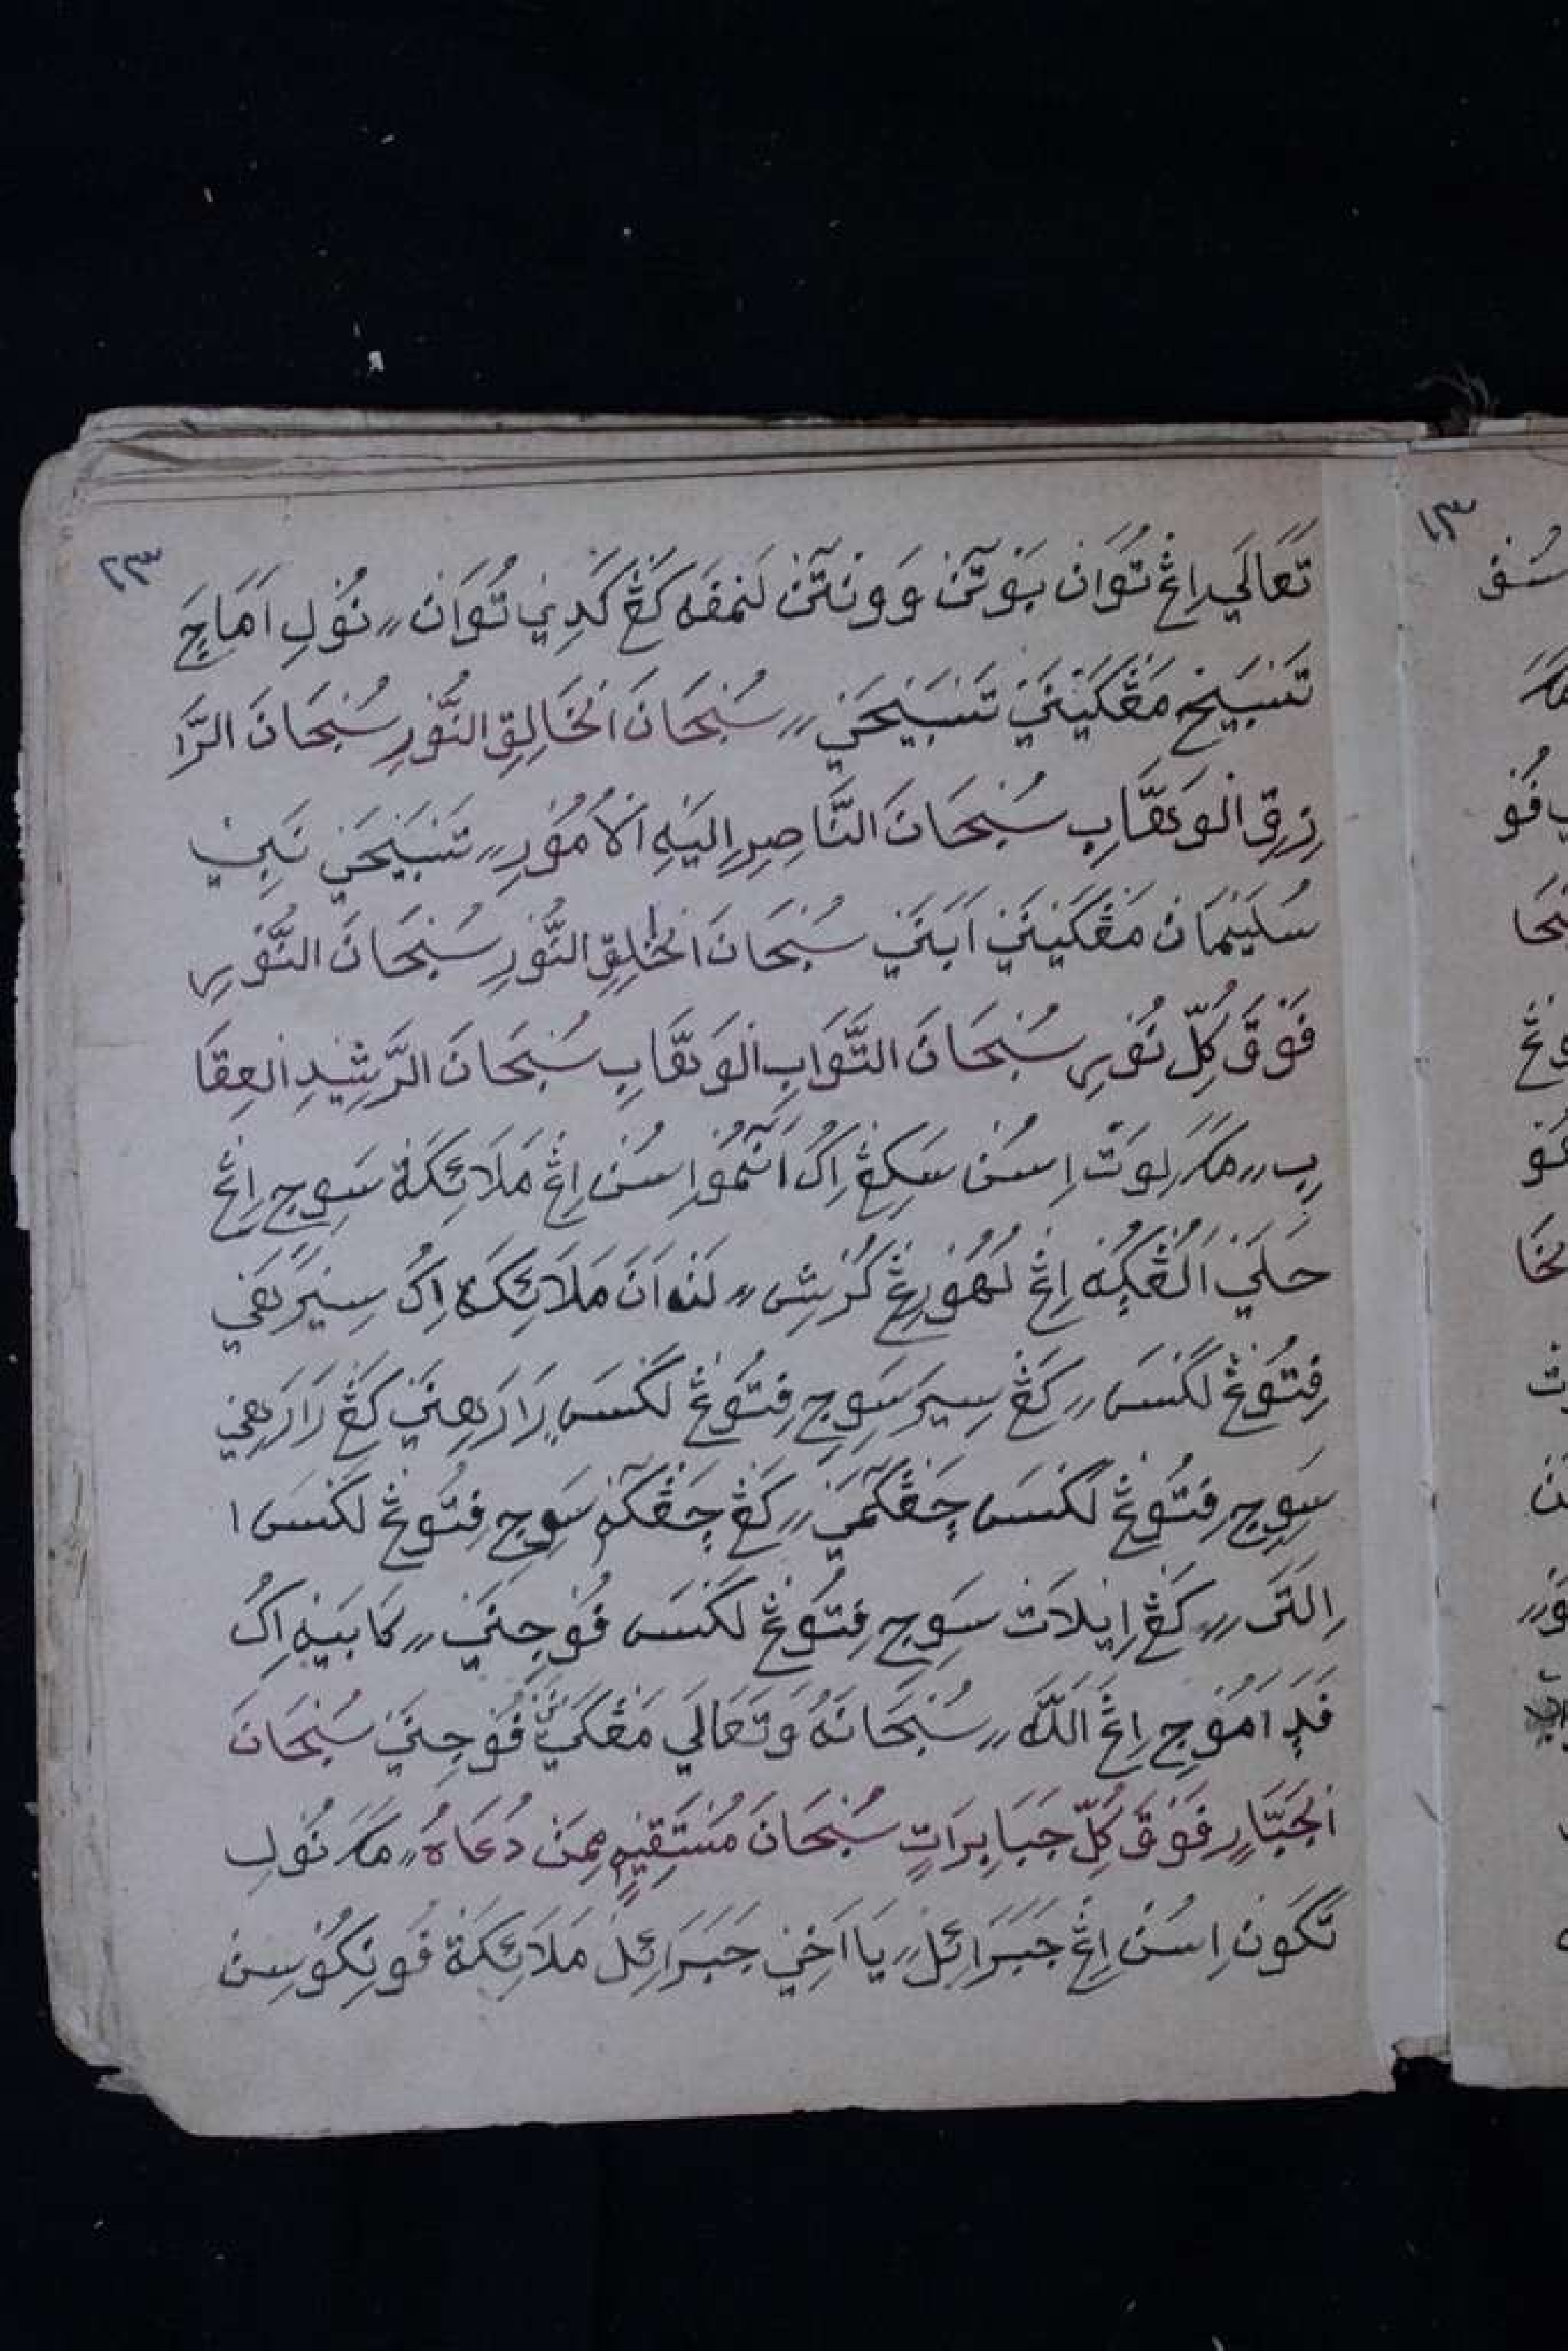 ٢٣
تَعَالَي اِڠْ تُوَانْ بَوْتَنْ وَوَنْتَنْ لَنْمَفَهْ كَڠْ كَدِيْ تُوَانْ ؍؍ نُوْلِ اَمَاچَ
تَسْبِيْحْ مَڠْكَيْنَيْ تَسْبِيْحَيْ ؍؍ سُبْحَانَ الْخَالِقِ النُّوْرِ سُبْحَانَ الرَّا
زِقِ الْوَهَّابِ سُبْحَانَ النَّاصِرِ اِلَيْهِ الْاُمُوْرِ ؍؍ تَسْبِيْحَيْ نَبِيْ
سُلَيْمَانْ مَڠْكَيْنَيْ اُنَيْنَيْ سُبْحَانَ الْخٰلِقِ النُّوْرِ سُبْحَانَ النُّوْرِ
فَوْقَ كُلِّ نُوْرٍ سُبْحَانَ التَّوَابِ الْوَهَّابِ سُبْحَانَ الرَّشِيْدِ الْعِقَا
بِ ؍؍ مَكَ لِوَتْ اِسُنْ سَكِڠْ اِكُ اَنَمُوْ اِسُنْ اِڠْ مَلَائِكَةْ سَوِجِ اِڠْ
حَلَيْ اَلُڠْكُهْ اِڠْ لُهُوْرِڠْ كُرْشِ ؍؍ لَنْ اَنَ مَلَائِكَةْ اِكُ سِيْرَهَيْ
فِتُوْڠْ لَكْسَ ؍؍ كَڠْ سِيْرَ سَوِجِ فِتُوْڠْ لَكْسَ رَارَهِنَيْ كَڠْ رَارَهِيْ
سَوِجِ فِتُوْڠْ لَكْسَ چَڠْكَمَيْ ؍؍ كَڠْ چَڠْكَمْ سَوِجِ فِتُوْڠْ لَكْسَ ا
اِلَتَىْ ؍؍ كَڠْ اِيْلَاتْ سَوِجِ فِتُوْڠْ لَكْسَ فُوْجِنَيْ ؍؍ كَابَيْهْ اِكُ
فَدَ اَمُوْجِ اِڠْ اَللّٰهْ ؍؍ سُبْحَانَهُ وَتَعَالَي مَڠْكَنَ فُوْجِنَيْ سُبْحَانَ
الْجَبَّارِ فَوْقَ كُلِّ جَبَابِرَاتٍ سُبْحَانَ مُسْتَقِيْمٍ مِمَنْ دُعَاهُ ؍؍ مَكَ نُوْلِ
تَكَوْنْ اِسُنْ اِڠْ جَبَرَائِلْ ؍؍ يَا اَخِيْ جَبَرَائِلْ مَلَائِكَةْ فُوْنِكُوْ سِنْ